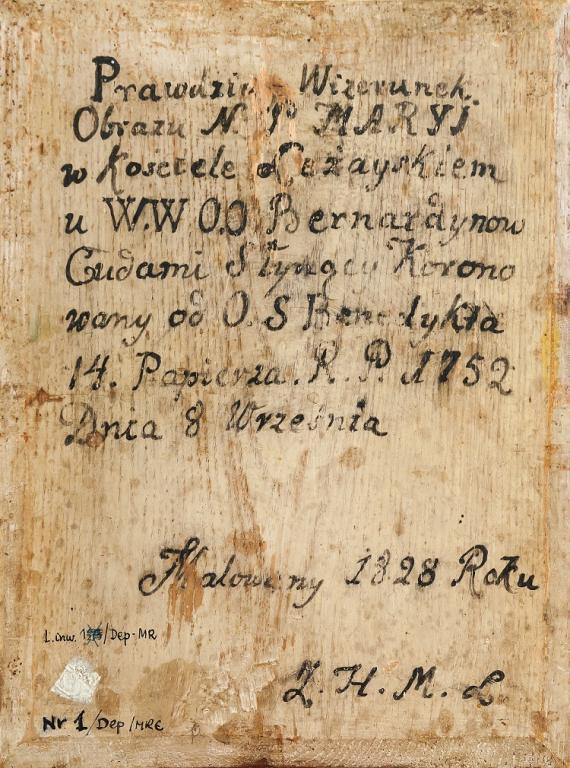 Prawdziw Wizerunek.
Obrazu N. P MARYI
w Kosciele Leżayskiem
u W.W O.O Bernardynow
Cudami Słynący Korono
wany od O. S Benedykta
14. Papierza. R. P. 1752
Dnia 8 Września
Malowany 1828 Roku
L.inw. /Dep-MR
Z. H. M. L
Nr 1/Dep/MRE